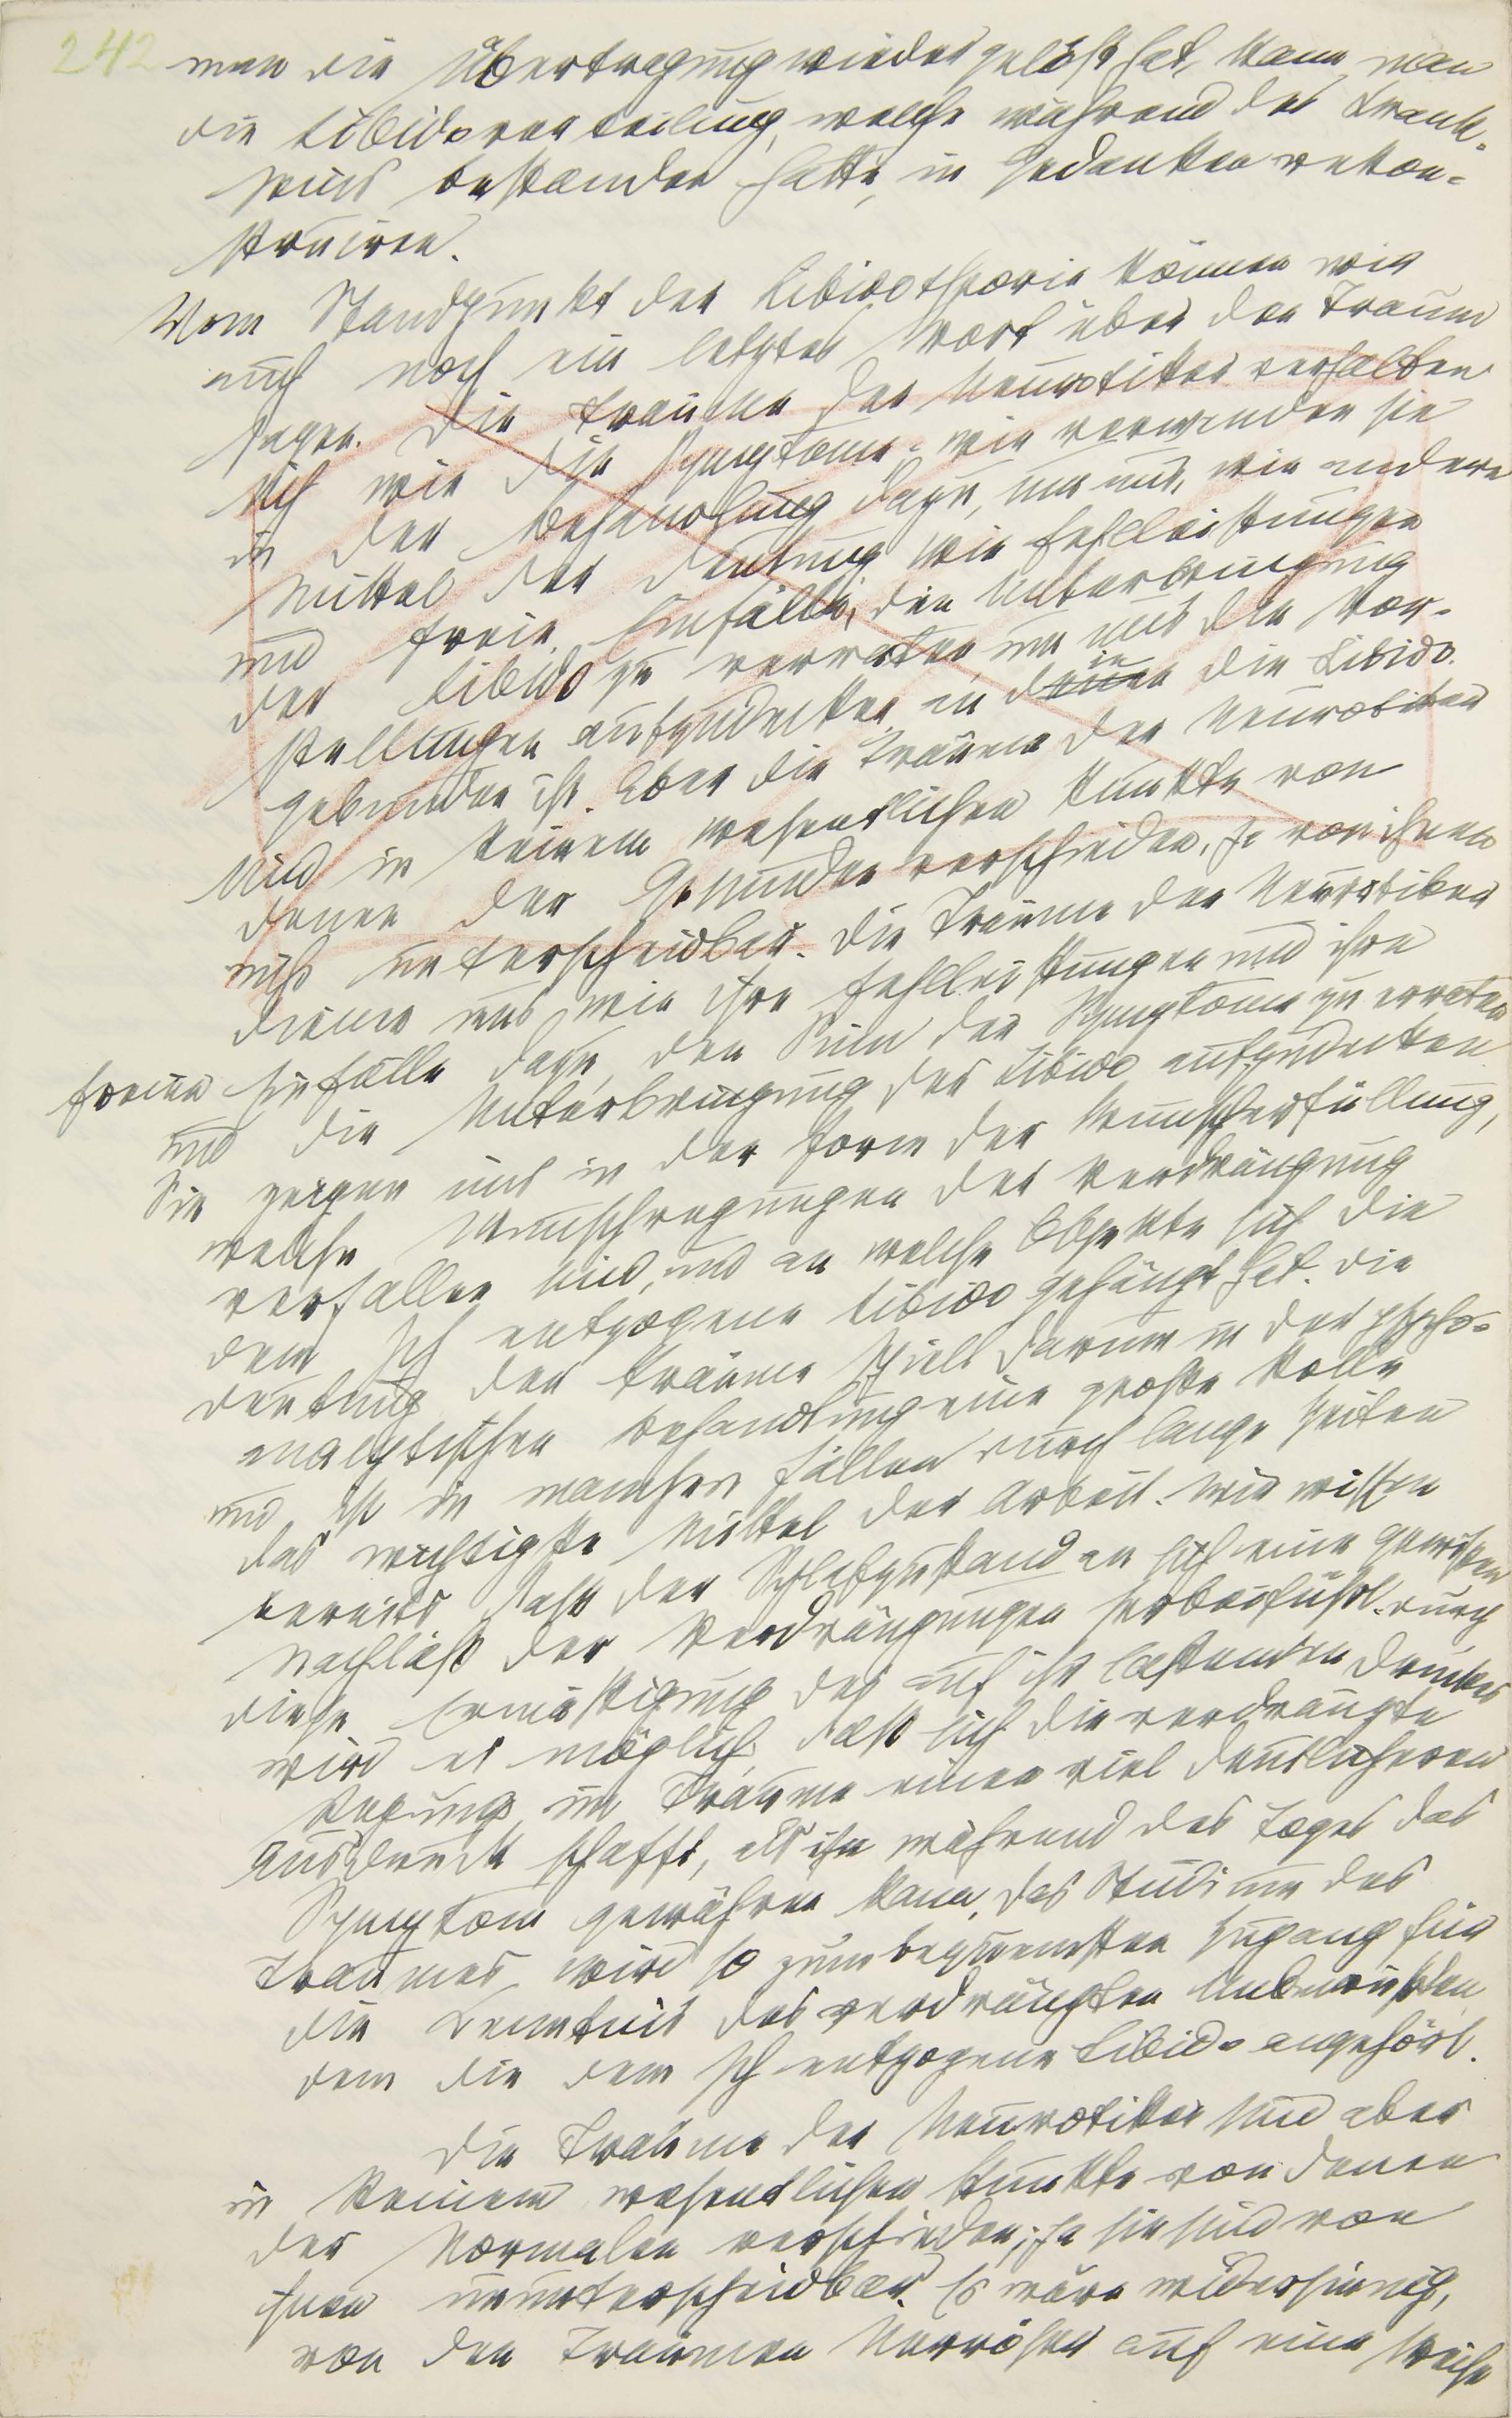 242
man die Übertragung wieder gelöst hat, kann man
die Libidoverteilung, welche während des Krank-
seins bestanden hatte, in Gedanken rekon-
struiren.
Vom Standpunkt der Libidotheorie können wir
auch noch ein letztes Wort über den Traum
sagen. Die Träume der Neurotiker verhalten
sich wie die Symptome. wir verwenden sie
in der Behandlung dazu, um uns, wie andere
Mittel der Deutung wie Fehlleistungen
und freie Einfälle, die Unterbringung
der Libido zu verraten um uns die Vor-
stellungen aufzudecken in denen die Libido
gebunden ist. Aber die Träume der Neurotiker
sind in keinem wesentlichen Punkte von
denen der Gesunden verschieden, ja von ihnen
nicht unterscheidbar. Die Träume der Neurotiker
dienen uns wie ihre Fehlleistungen und ihre
freien Einfälle dazu, den Sinn der Symptome zu erraten
und die Unterbringung der Libido aufzudecken
Sie zeigen uns in der Form der Wunscherfüllung,
welche Wunschregungen der Verdrängung
verfallen sind, und an welche Objekte sich die
dem Ich entzogene Libido gehängt hat. Die
Deutung der Träume spielt darum in der psycho-
analytischen Behandlung eine große Rolle
und ist in manchen Fällen durch lange Zeiten
das wichtigste Mittel der Arbeit. Wir wissen
bereits daß der Schlafzustand an sich einen gewissen
Nachlaß der Verdrängungen herbeiführt. durch
diese Ermäßigung des auf ihr lastenden Druckes
wird es möglich, daß sich die verdrängte
Regung im Traume einen viel deutlicheren
Ausdruck schafft, als ihn während des Tages das
Symptom gewähren kann. Das Studium des
Traumes wird so zum bequemsten Zugang für
die Kenntnis des verdrängten Unbewußten
dem die dem Ich entzogene Libido angehört.
Die Träume der Neurotiker sind aber
in keinem wesentlichen Punkte von denen
der Normalen verschieden; ja sie sind von
ihnen ununterscheidbar. Es wäre widersinnig,
von den Träumen Nervöser auf eine Weise